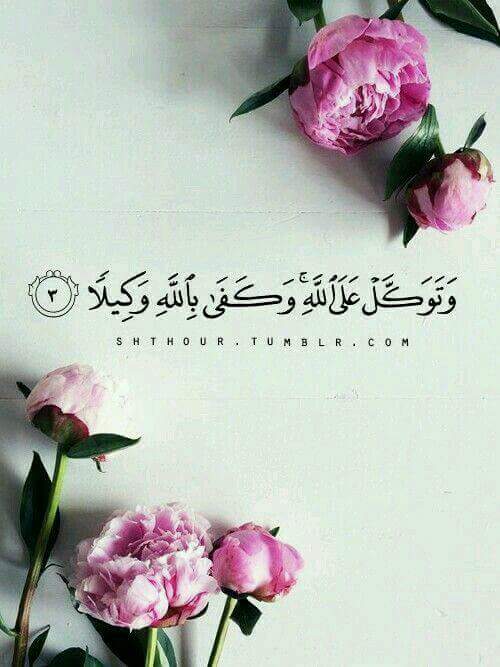 وَتَوَكَّلْ عَلَى ٱللَّهِ ۚ وَكَفَىٰ بِٱللَّهِ وَكِيلًا ٣
SHTHOUR.TUMBLR.COM